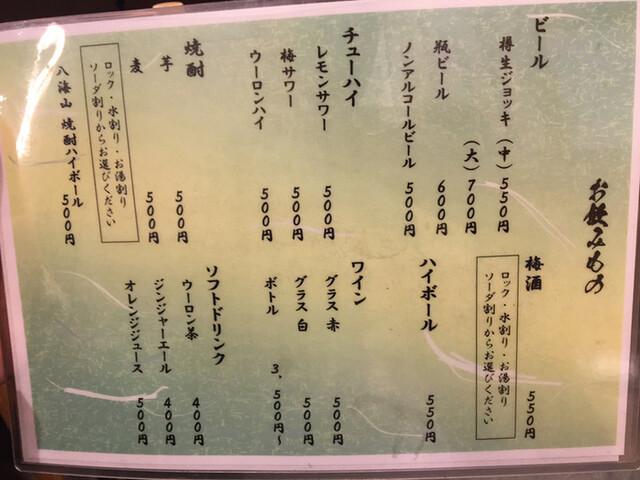 お飲みもの
ビール
樽生ジョッキ（中）550円
（大）700円
瓶ビール 600円
ノンアルコールビール 500円
チューハイ
レモンサワー 500円
梅サワー 500円
ウーロンハイ 500円
焼酎
芋 500円
麦 500円
ロック・水割り・お湯割り
ソーダ割りからお選びください
八海山 焼酎ハイボール 500円
梅酒 550円
ロック・水割り・お湯割り
ソーダ割りからお選びください
ハイボール 550円
ワイン
グラス 赤 500円
グラス 白 500円
ボトル 3,500円～
ソフトドリンク
ウーロン茶 400円
ジンジャーエール 400円
オレンジジュース 500円